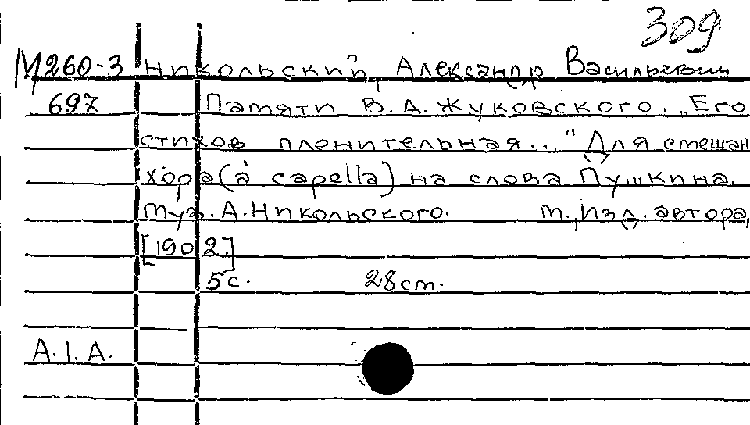 309
М260-3 Никольский, Александр Васильевич
697 Памяти В.А.Жуковского. „Его
стихов пленительная..." Для смешан
хора(a capella) на слова Пушкина.
Муз. А.Никольского. м., Изд. автора,
[1902]
5с. 28см.
А.I.А.